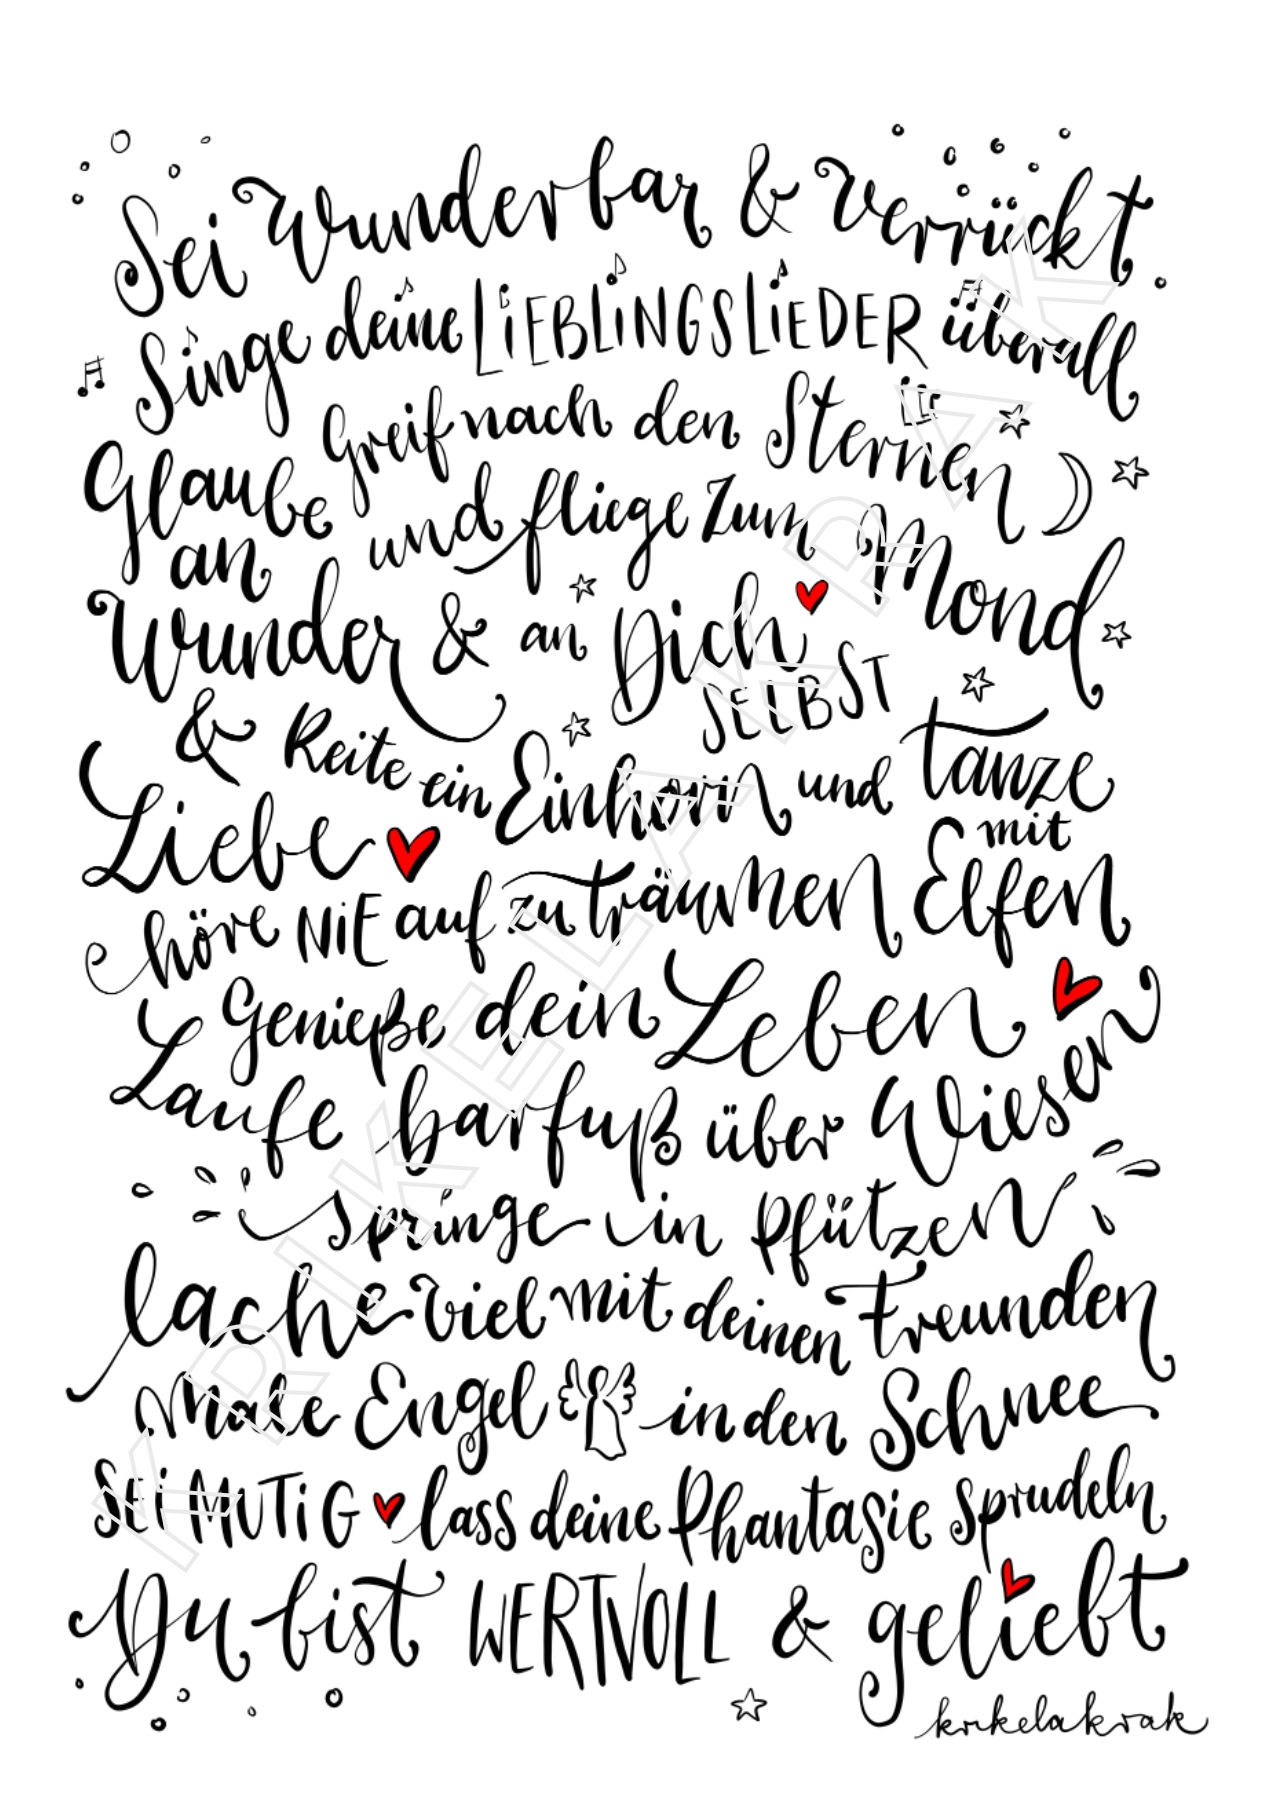 Sei wunderbar & verrückt
Singe deine LiEBLiNGSLiEDER überall
Greif nach den Sternen
und fliege zum Mond
Glaube
an
Wunder & an Dich
SELBST
& Liebe
Reite ein Einhorn und tanze
mit
Elfen
höre NiE auf zu träumen
Genieße dein Leben
Laufe barfuß über Wiesen
springe in Pfützen
lache viel mit deinen Freunden
Male Engel in den Schnee
SEi MUTiG lass deine Phantasie sprudeln
Du bist WERTVOLL & geliebt
krikelakrak
KRIKELAKRAK